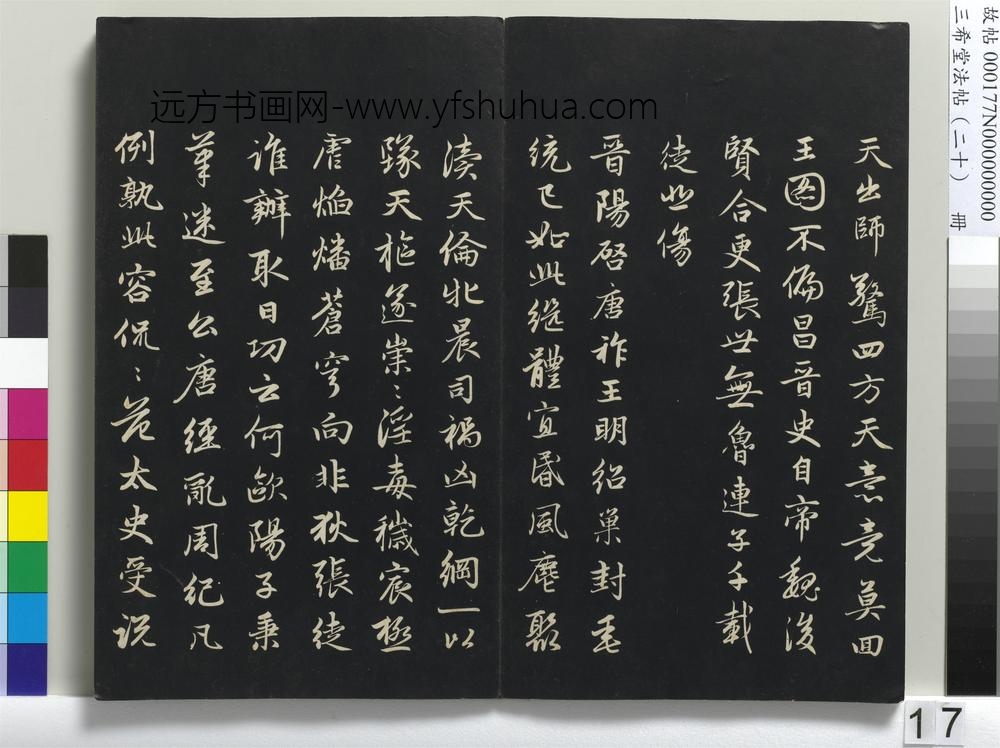 故帖 000177N000000000
三希堂法帖（二十） 册
远方书画网-www.yfshuhua.com
天出師驚四方天意竟莫回
王圖不偏昌晉史自帝魏後
賢合更張世無魯連子千載
徒悲傷
晉陽啓唐祚王明紹巢封垂
統已如此继體宜昬風麀聚
瀆天倫牝晨司禍凶乾綱一以
墜天樞遂崇〻淫毒穢宸極
虐焰燔蒼穹向非狄張徒
誰辦取日功云何歐陽子秉
筆迷至公唐經亂周紀凡
例孰此容侃〻范太史受説
17